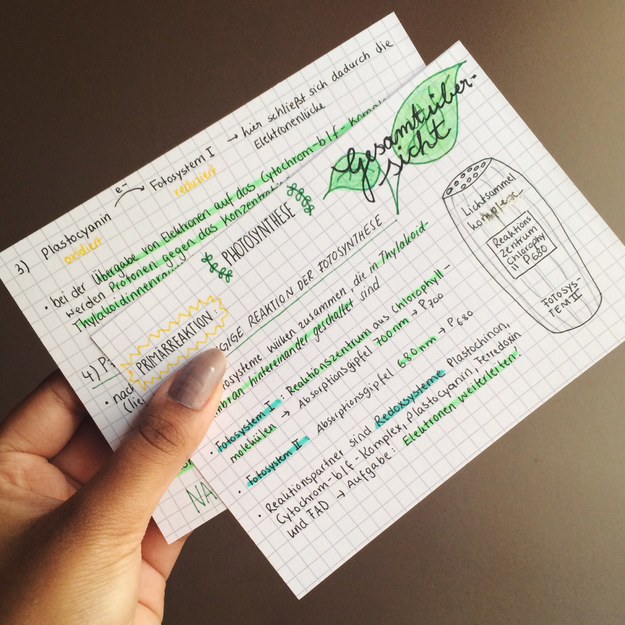 3) Plastocyanin e- Fotosystem I → hier schließt sich dadurch die
oxidiert reduziert Elektronenlücke
• bei der Übergabe von Elektronen auf das Cytochrom-b/f-Komplex
werden Protonen gegen das Konzentrat
Thylakoidinnenra
4)
nach
NA
Gesamtüber-
sicht
PHOTOSYNTHESE
PRIMÄRREAKTION:
GIGE REAKTION DER FOTOSYNTHESE
systeme wirken zusammen, die in Thylakoid-
bran hintereinander geschaltet sind
• Fotosystem I: Reaktionszentrum aus Chlorophyll-
molekülen → Absorptionsgipfel 700nm → P700
• Fotosystem II: Absorptionsgipfel 680nm → P680
• Reaktionspartner sind Redoxsysteme Plastochinon,
Cytochrom-b/f-Komplex, Plastocyanin, Ferredoxin
und FAD → Aufgabe: Elektronen weiterleiten!
Lichtsammel
komplex
Reaktions
zentrum
Chlorophy
ll P680
FOTOSYS-
TEM II